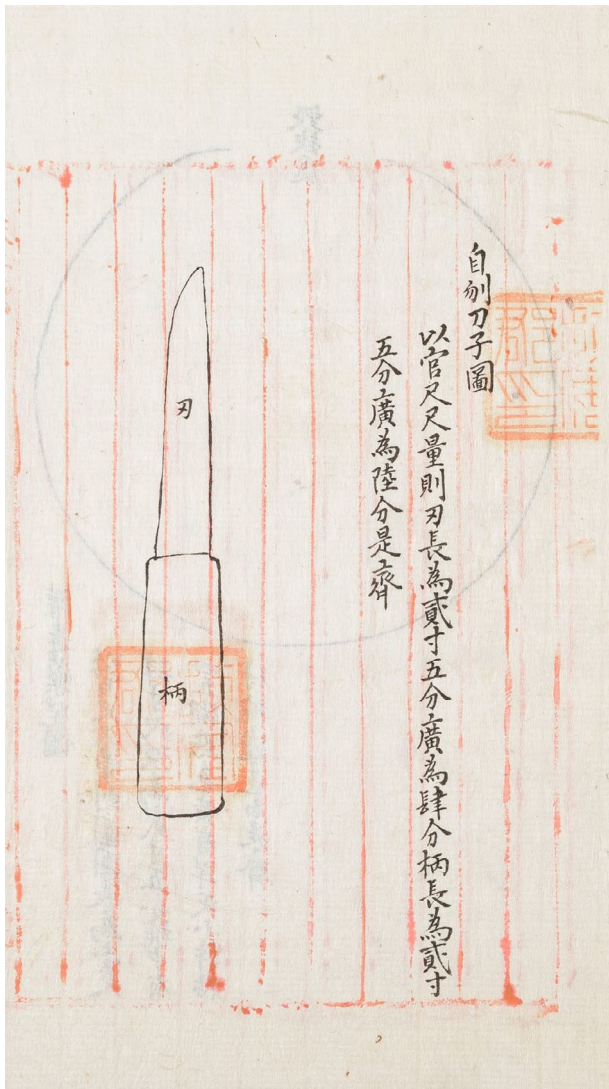 自刎刀子圖
以官尺尺量則刃長為貳寸五分廣為肆分柄長為貳寸
五分廣為陸分是齊
刃
柄